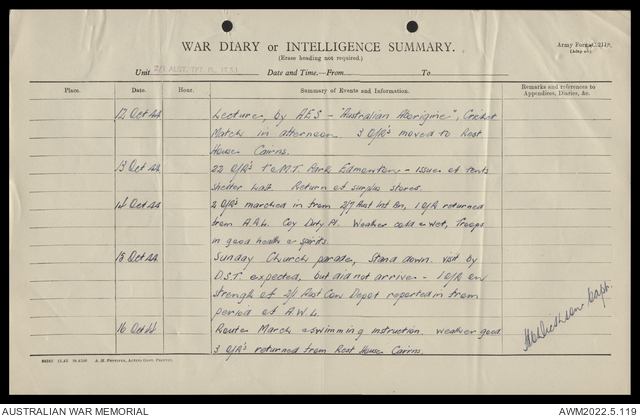 WAR DIARY or INTELLIGENCE SUMMARY.
(Erase heading not required.)
Army Form
Unit Date and Time—From To
Place. Date. Hour. Summary of Events and Information. Remarks and references to Appendices, Diaries, &c.
12 Oct 44 Lecture, by AES - "Australian Aborigine", Cricket
Match in afternoon. 3 O/R's moved to Rest
House Cairns.
13 Oct 44 22 O/R's to M.T. Park Edmonton - issue of tents
shelter half. Return of surplus stores.
14 Oct 44 2 O/R's marched in from 2/7 Aust Inf Bn, 1 O/R returned
from A.A.H. Coy Duty Pl. Weather cold & wet, Troops
in good health & spirits.
15 Oct 44 Sunday Church parade, Stand down. visit by
D.S.T. expected, but did not arrive - 1 O/R on
strength of 2/1 Aust Con Depot reported in from
period of A.W.L.
16 Oct 44 Route March & swimming instruction. weather good
3 O/R's returned from Rest House Cairns.
Capt.
AUSTRALIAN WAR MEMORIAL
AWM2022.5.119